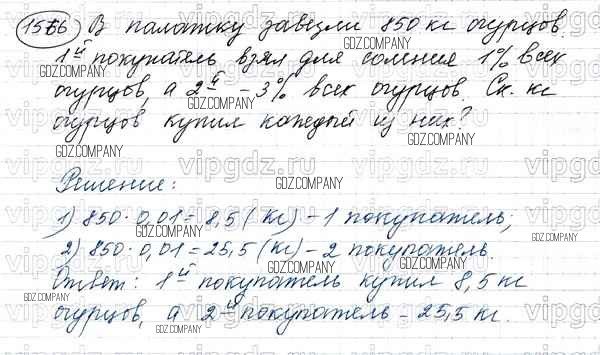 1566 В палатку завезли 850 кг огурцов.
1й покупатель взял для соления 1% всех
огурцов, а 2й - 3% всех огурцов. Ск. кг
огурцов купил каждый из них?
Решение:
1) 850 · 0,01 = 8,5 (кг) - 1 покупатель;
2) 850 · 0,01 = 25,5 (кг) - 2 покупатель.
Ответ: 1й покупатель купил 8,5 кг
огурцов, а 2й покупатель - 25,5 кг.